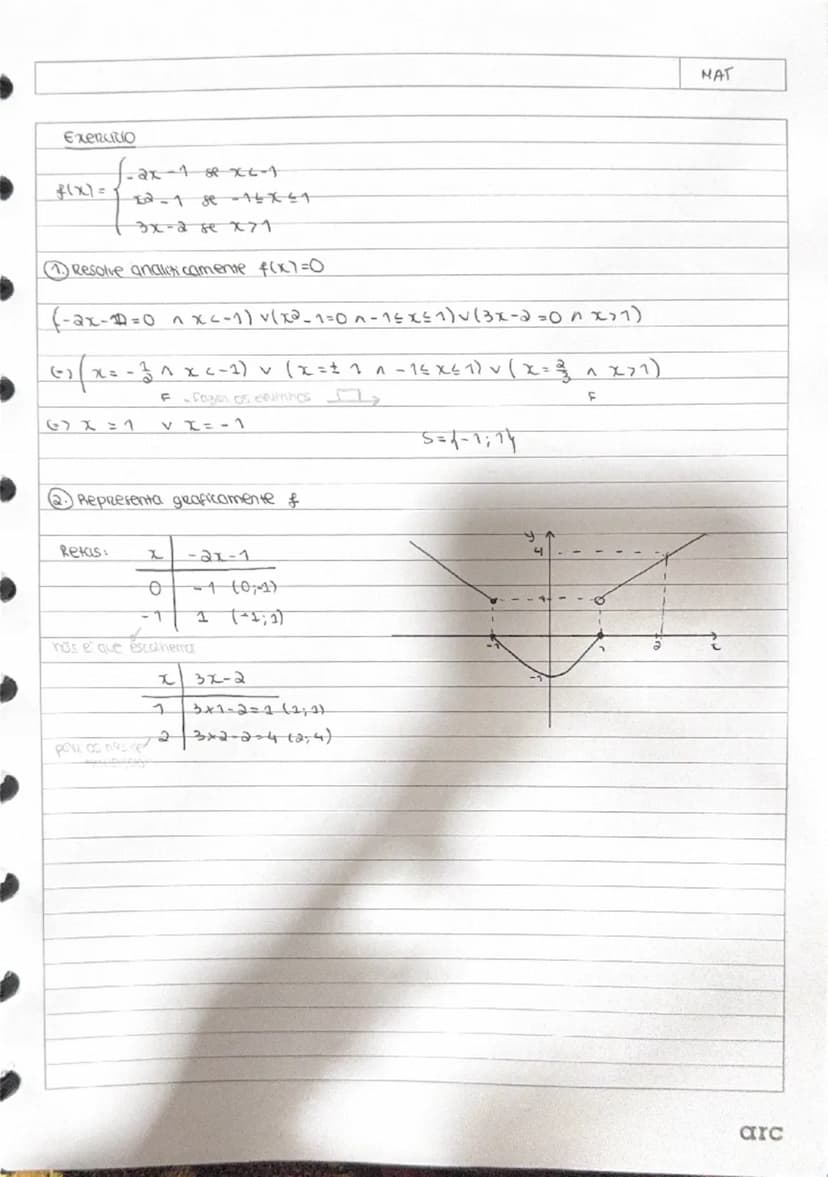 MAT
Exercício
f(x) = { -2x-1 se x<-1
x2-1 se -1≤x≤1
3x-2 se x>1
1. Resolve analiticamente f(x)=0
(-2x-1=0 ∧ x<-1) ∨ (x2-1=0 ∧ -1≤x≤1) ∨ (3x-2=0 ∧ x>1)
(=) (x=-1/2 ∧ x<-1) ∨ (x=±1 ∧ -1≤x≤1) ∨ (x=2/3 ∧ x>1)
F F
(=) x=1 ∨ x=-1
S={-1;1}
2. Representa graficamente f
Retas: x | -2x-1
0 | -1 (0;-1)
-1 | 1 (-1;1)
nós é que escolhemos
x | 3x-2
1 | 3x1-2=1 (1;1)
2 | 3x2-2=4 (2;4)
y
4
1
-1 1 2 x
-1
arc